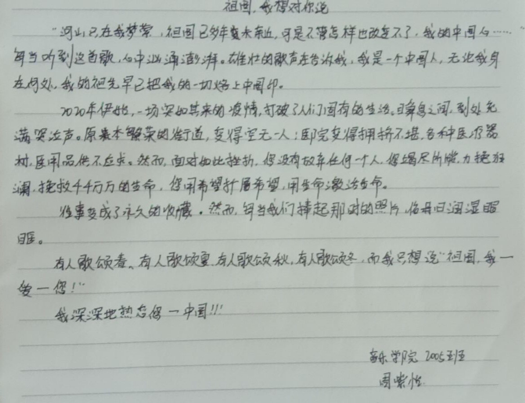 祖国,我想对你说
"河山只在我梦萦,祖国已多年未亲近,可是不管怎样也改变不了,我的中国心……"
每当听到这首歌,心中汹涌澎湃。雄壮的歌声在告诉我,我是一个中国人,无论我身
在何处,我的祖先早已把我的一切烙上中国印。
2020年伊始,一场突如其来的疫情,打破了人们固有的生活。瞬息之间,到处充
满哭泣声。原来本繁荣的街道,变得空无一人;医院变得拥挤不堪,各种医疗器
材、医用品供不应求。然而,面对如此挫折,您没有放弃任何一个人,您竭尽所能,力挽狂
澜,拯救4千万的生命,您用希望折属希望,用生命激活生命。
往事变成了永久的收藏。然而,每当我们捧起那时的照片,依旧日湿湿眼
眶。
有人歌颂春,有人歌颂夏,有人歌颂秋,有人歌颂冬,而我只想说"祖国,我一
爱一您!"
我深深地热恋您—中国!!!
音乐学院 2005班
周紫怡